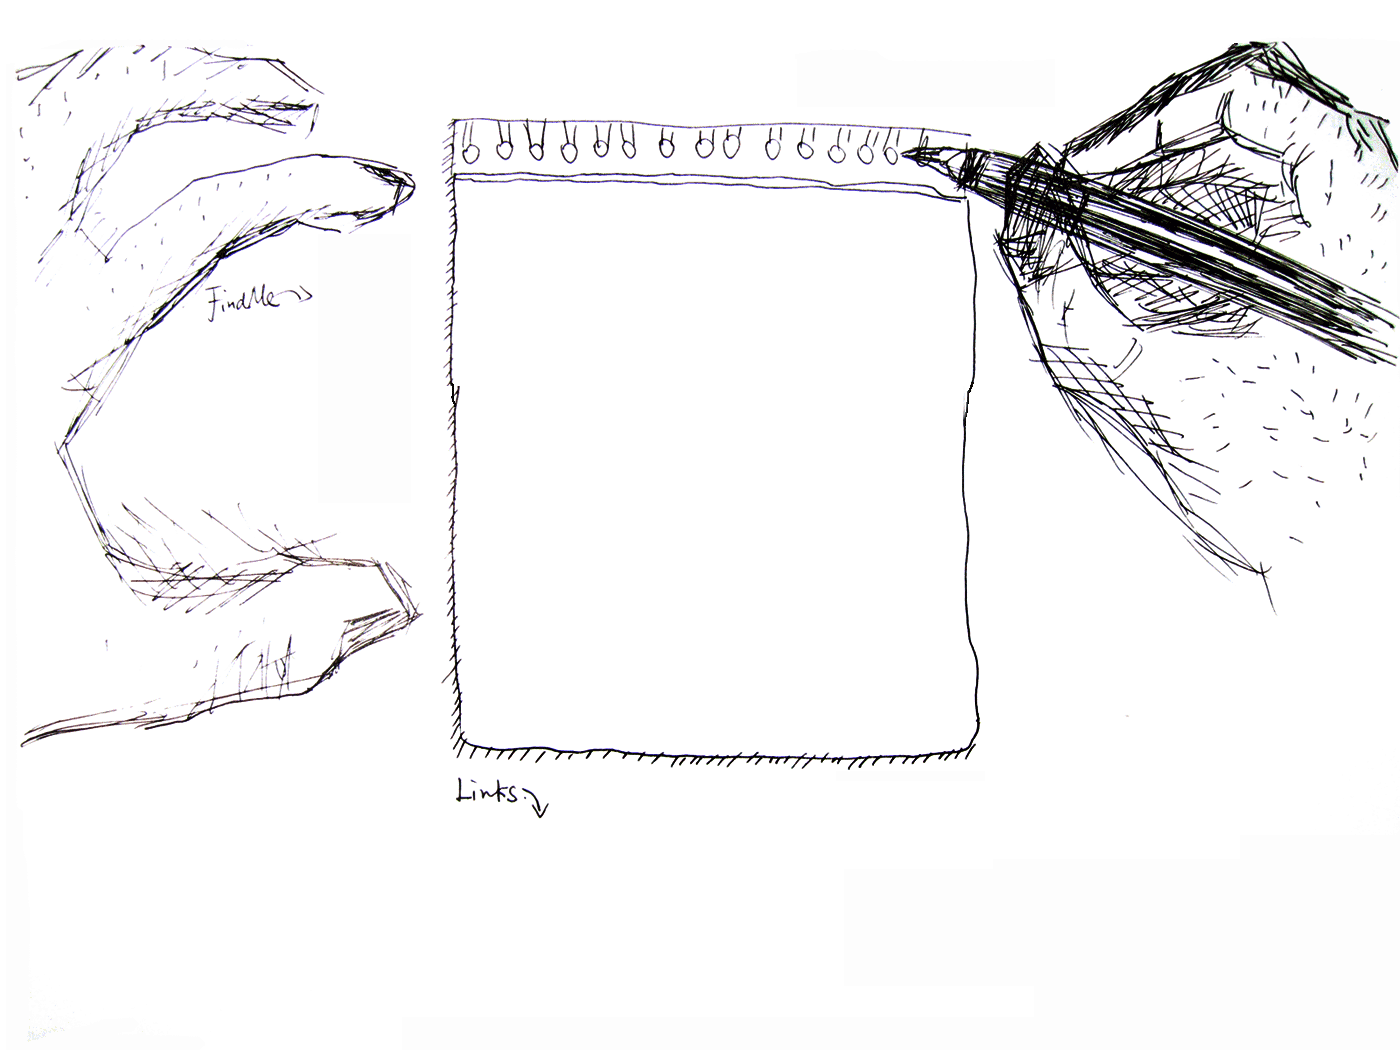 FindMe
Links